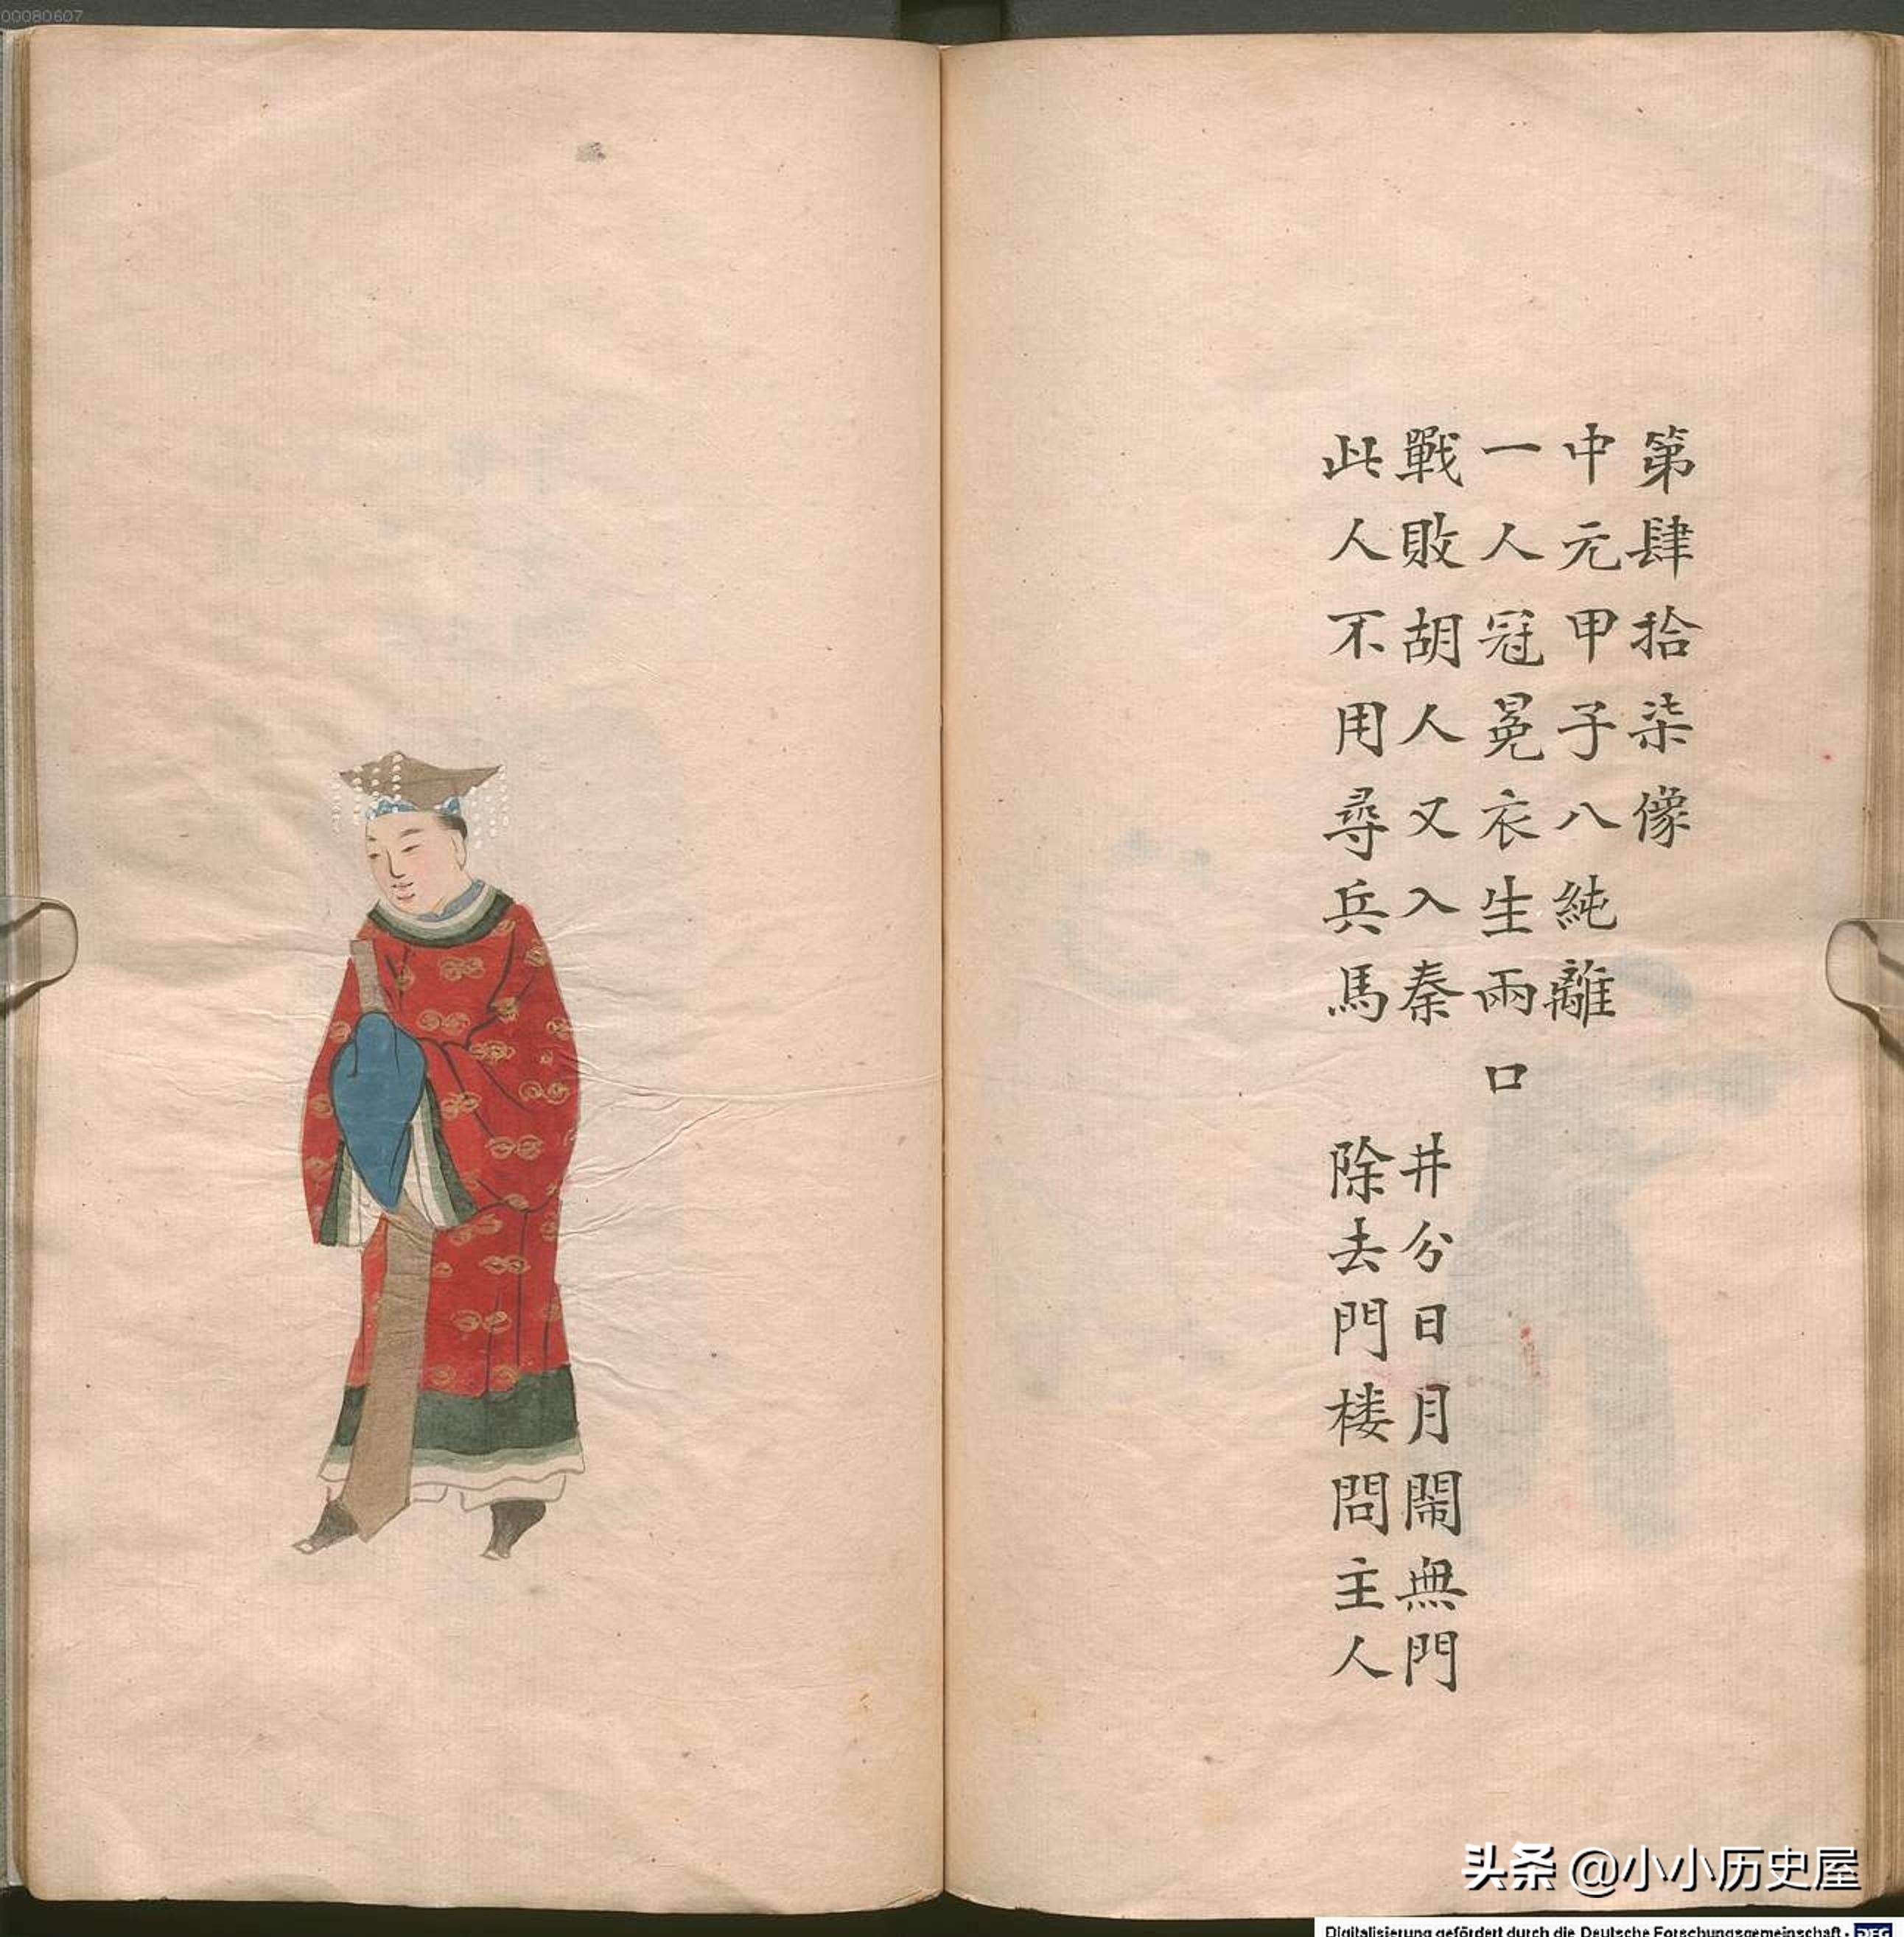 00080607
第肆拾柒像
中元甲子八純離
一人冠冕衣生兩口
戰敗胡人又入秦 井分日月鬧無門
此人不用尋兵馬 除去門楼問主人
头条 @小小历史屋
Digitalisierung gefördert durch die Deutsche Forschungsgemeinschaft - DFG